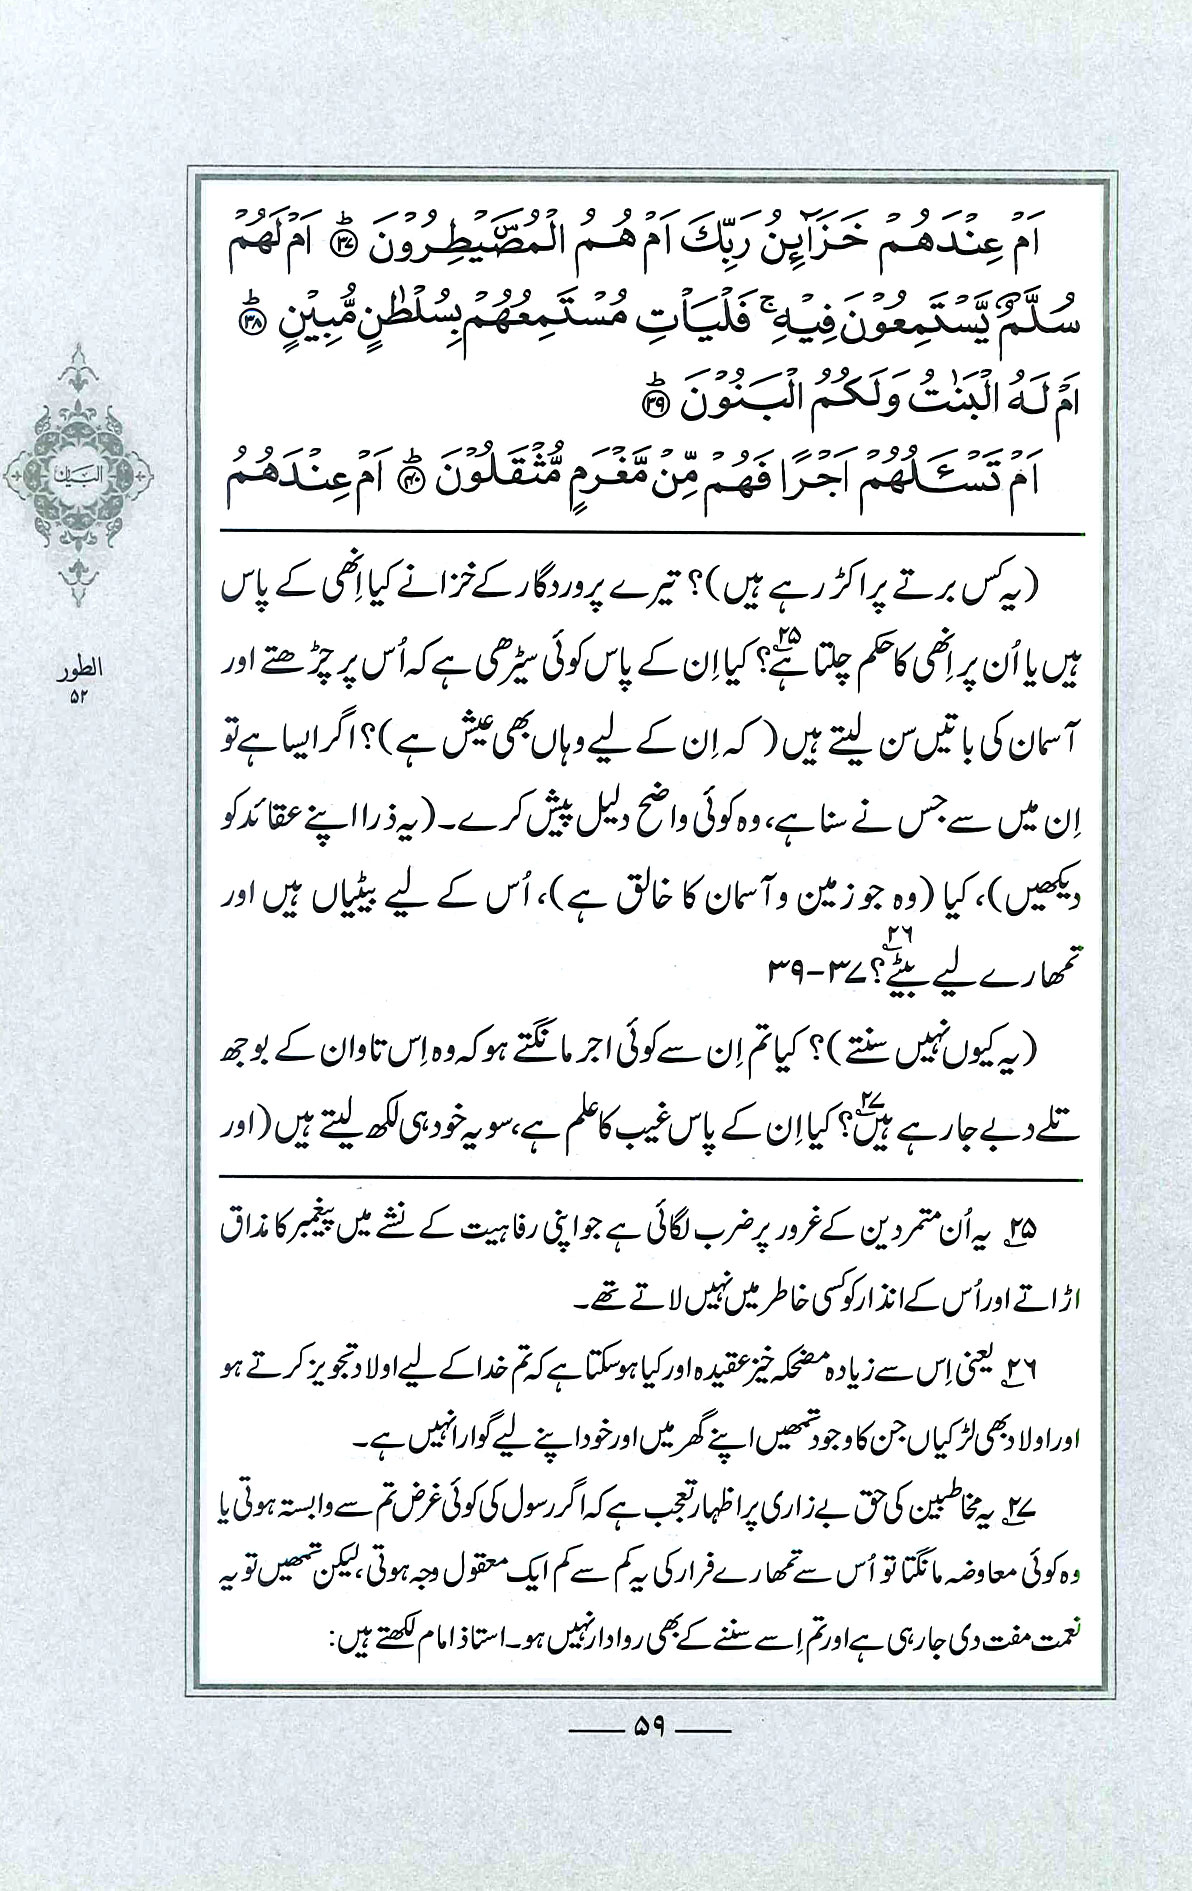 اَمْ عِنْدَهُمْ خَزَآئِنُ رَبِّكَ اَمْ هُمُ الْمُصَۜيْطِرُوْنَ ﴿٣٧﴾ اَمْ لَهُمْ
سُلَّمٌ يَّسْتَمِعُوْنَ فِيْهِ ۚ فَلْيَاْتِ مُسْتَمِعُهُمْ بِسُلْطٰنٍ مُّبِيْنٍ ﴿٣٨﴾
اَمْ لَهُ الْبَنٰتُ وَلَكُمُ الْبَنُوْنَ ﴿٣٩﴾
اَمْ تَسْـَٔلُهُمْ اَجْرًا فَهُمْ مِّنْ مَّغْرَمٍ مُّثْقَلُوْنَ ﴿٤٠﴾ اَمْ عِنْدَهُمُ
(یہ کس برتے پر اکڑ رہے ہیں)؟ تیرے پروردگار کے خزانے کیا اِنھی کے پاس
ہیں یا اُن پر اِنھی کا حکم چلتا ہے۲۵؟ کیا اِن کے پاس کوئی سیڑھی ہے کہ اُس پر چڑھتے اور
آسمان کی باتیں سن لیتے ہیں (کہ اِن کے لیے وہاں بھی عیش ہے)؟ اگر ایسا ہے تو
اِن میں سے جس نے سنا ہے، وہ کوئی واضح دلیل پیش کرے۔ (یہ ذرا اپنے عقائد کو
دیکھیں)، کیا (وہ جو زمین و آسمان کا خالق ہے)، اُس کے لیے بیٹیاں ہیں اور
تمھارے لیے بیٹے۲۶؟ ۳۷-۳۹
(یہ کیوں نہیں سنتے)؟ کیا تم اِن سے کوئی اجر مانگتے ہو کہ وہ اِس تاوان کے بوجھ
تلے دبے جا رہے ہیں۲۷؟ کیا اِن کے پاس غیب کا علم ہے، سو یہ خود ہی لکھ لیتے ہیں (اور
۲۵؎ یہ اُن متمردین کے غرور پر ضرب لگائی ہے جو اپنی رفاہیت کے نشے میں پیغمبر کا مذاق
اڑاتے اور اُس کے انذار کو کسی خاطر میں نہیں لاتے تھے۔
۲۶؎ یعنی اِس سے زیادہ مضحکہ خیز عقیدہ اور کیا ہو سکتا ہے کہ تم خدا کے لیے اولاد تجویز کرتے ہو
اور اولاد بھی لڑکیاں جن کا وجود تمھیں اپنے گھر میں اور خود اپنے لیے گوارا نہیں ہے۔
۲۷؎ یہ مخاطبین کی حق بے زاری پر اظہار تعجب ہے کہ اگر رسول کی کوئی غرض تم سے وابستہ ہوتی یا
وہ کوئی معاوضہ مانگتا تو اُس سے تمھارے فرار کی یہ کم سے کم ایک معقول وجہ ہوتی، لیکن تمھیں تو یہ
نعمت مفت دی جا رہی ہے اور تم اِسے سننے کے بھی روادار نہیں ہو۔ استاذ امام لکھتے ہیں:
البیان
الطور
۵۲
—— ۵۹ ——